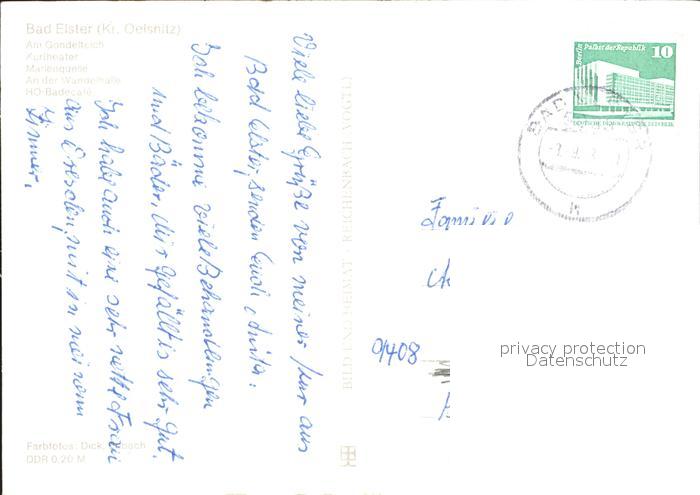 Bad Elster (Kr. Oelsnitz)
Am Gondelteich
Kurtheater
Marienquelle
An der Wandelhalle
HO-Badecafé
Viele liebe Grüße von meiner Kur aus
Bad Elster, senden Euch, Anita.
Ich bekomme viele Behandlungen
und Bäder, mir gefällt is sehr gut.
Ich habe auch eine sehr nette Frau
aus Dresden, mit in meinem
Zimmer.
Farbfotos: Dick,
DDR 0,20 M
BILD UND HEIMAT · REICHENBACH (VOGTL)
Berlin Palast der Republik 10
DEUTSCHE DEMOKRATISCHE REPUBLIK
BAD
h
Familie
9408
privacy protection
Datenschutz